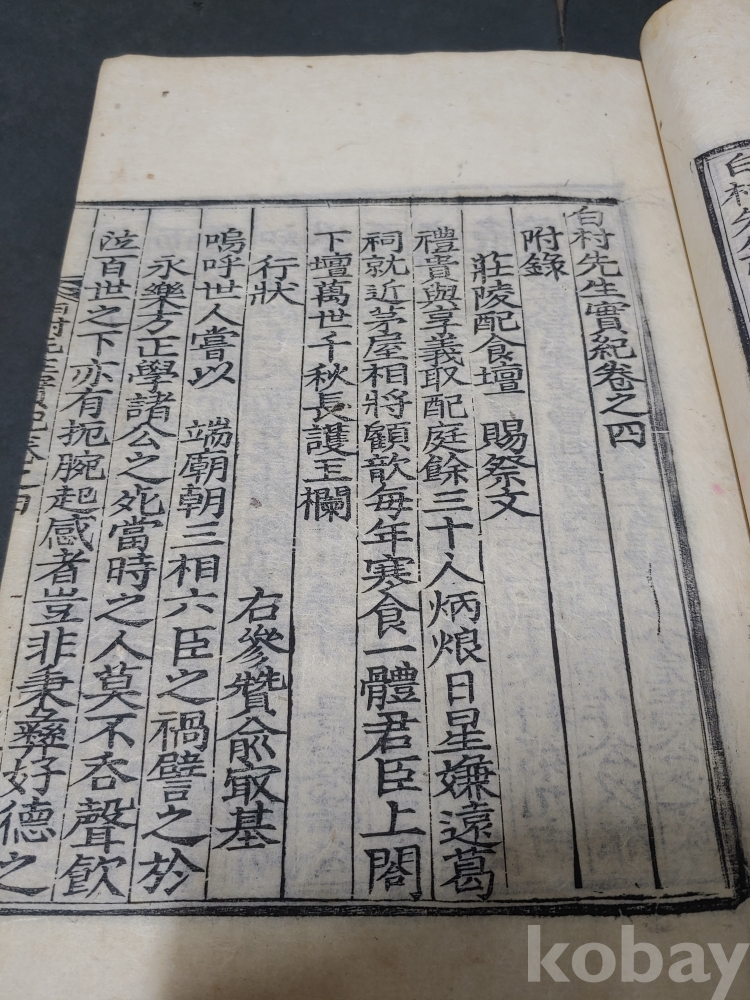 白村先生實紀卷之四
附錄
莊陵配食壇 賜祭文
禮貴與享義取配庭餘三十人炳烺日星嫌遠葛
祠就近茅屋相將顧歆每年寒食一體君臣上閤
下壇萬世千秋長護玉欄
行狀 右參贊兪㝡基
嗚呼世人嘗以 端廟朝三相六臣之禍譬之於
永樂方正學諸公之死當時之人莫不呑聲飮
泣百世之下亦有扼腕起感者豈非秉彝好德之
白村先生實紀卷之四
白村先生
kobay